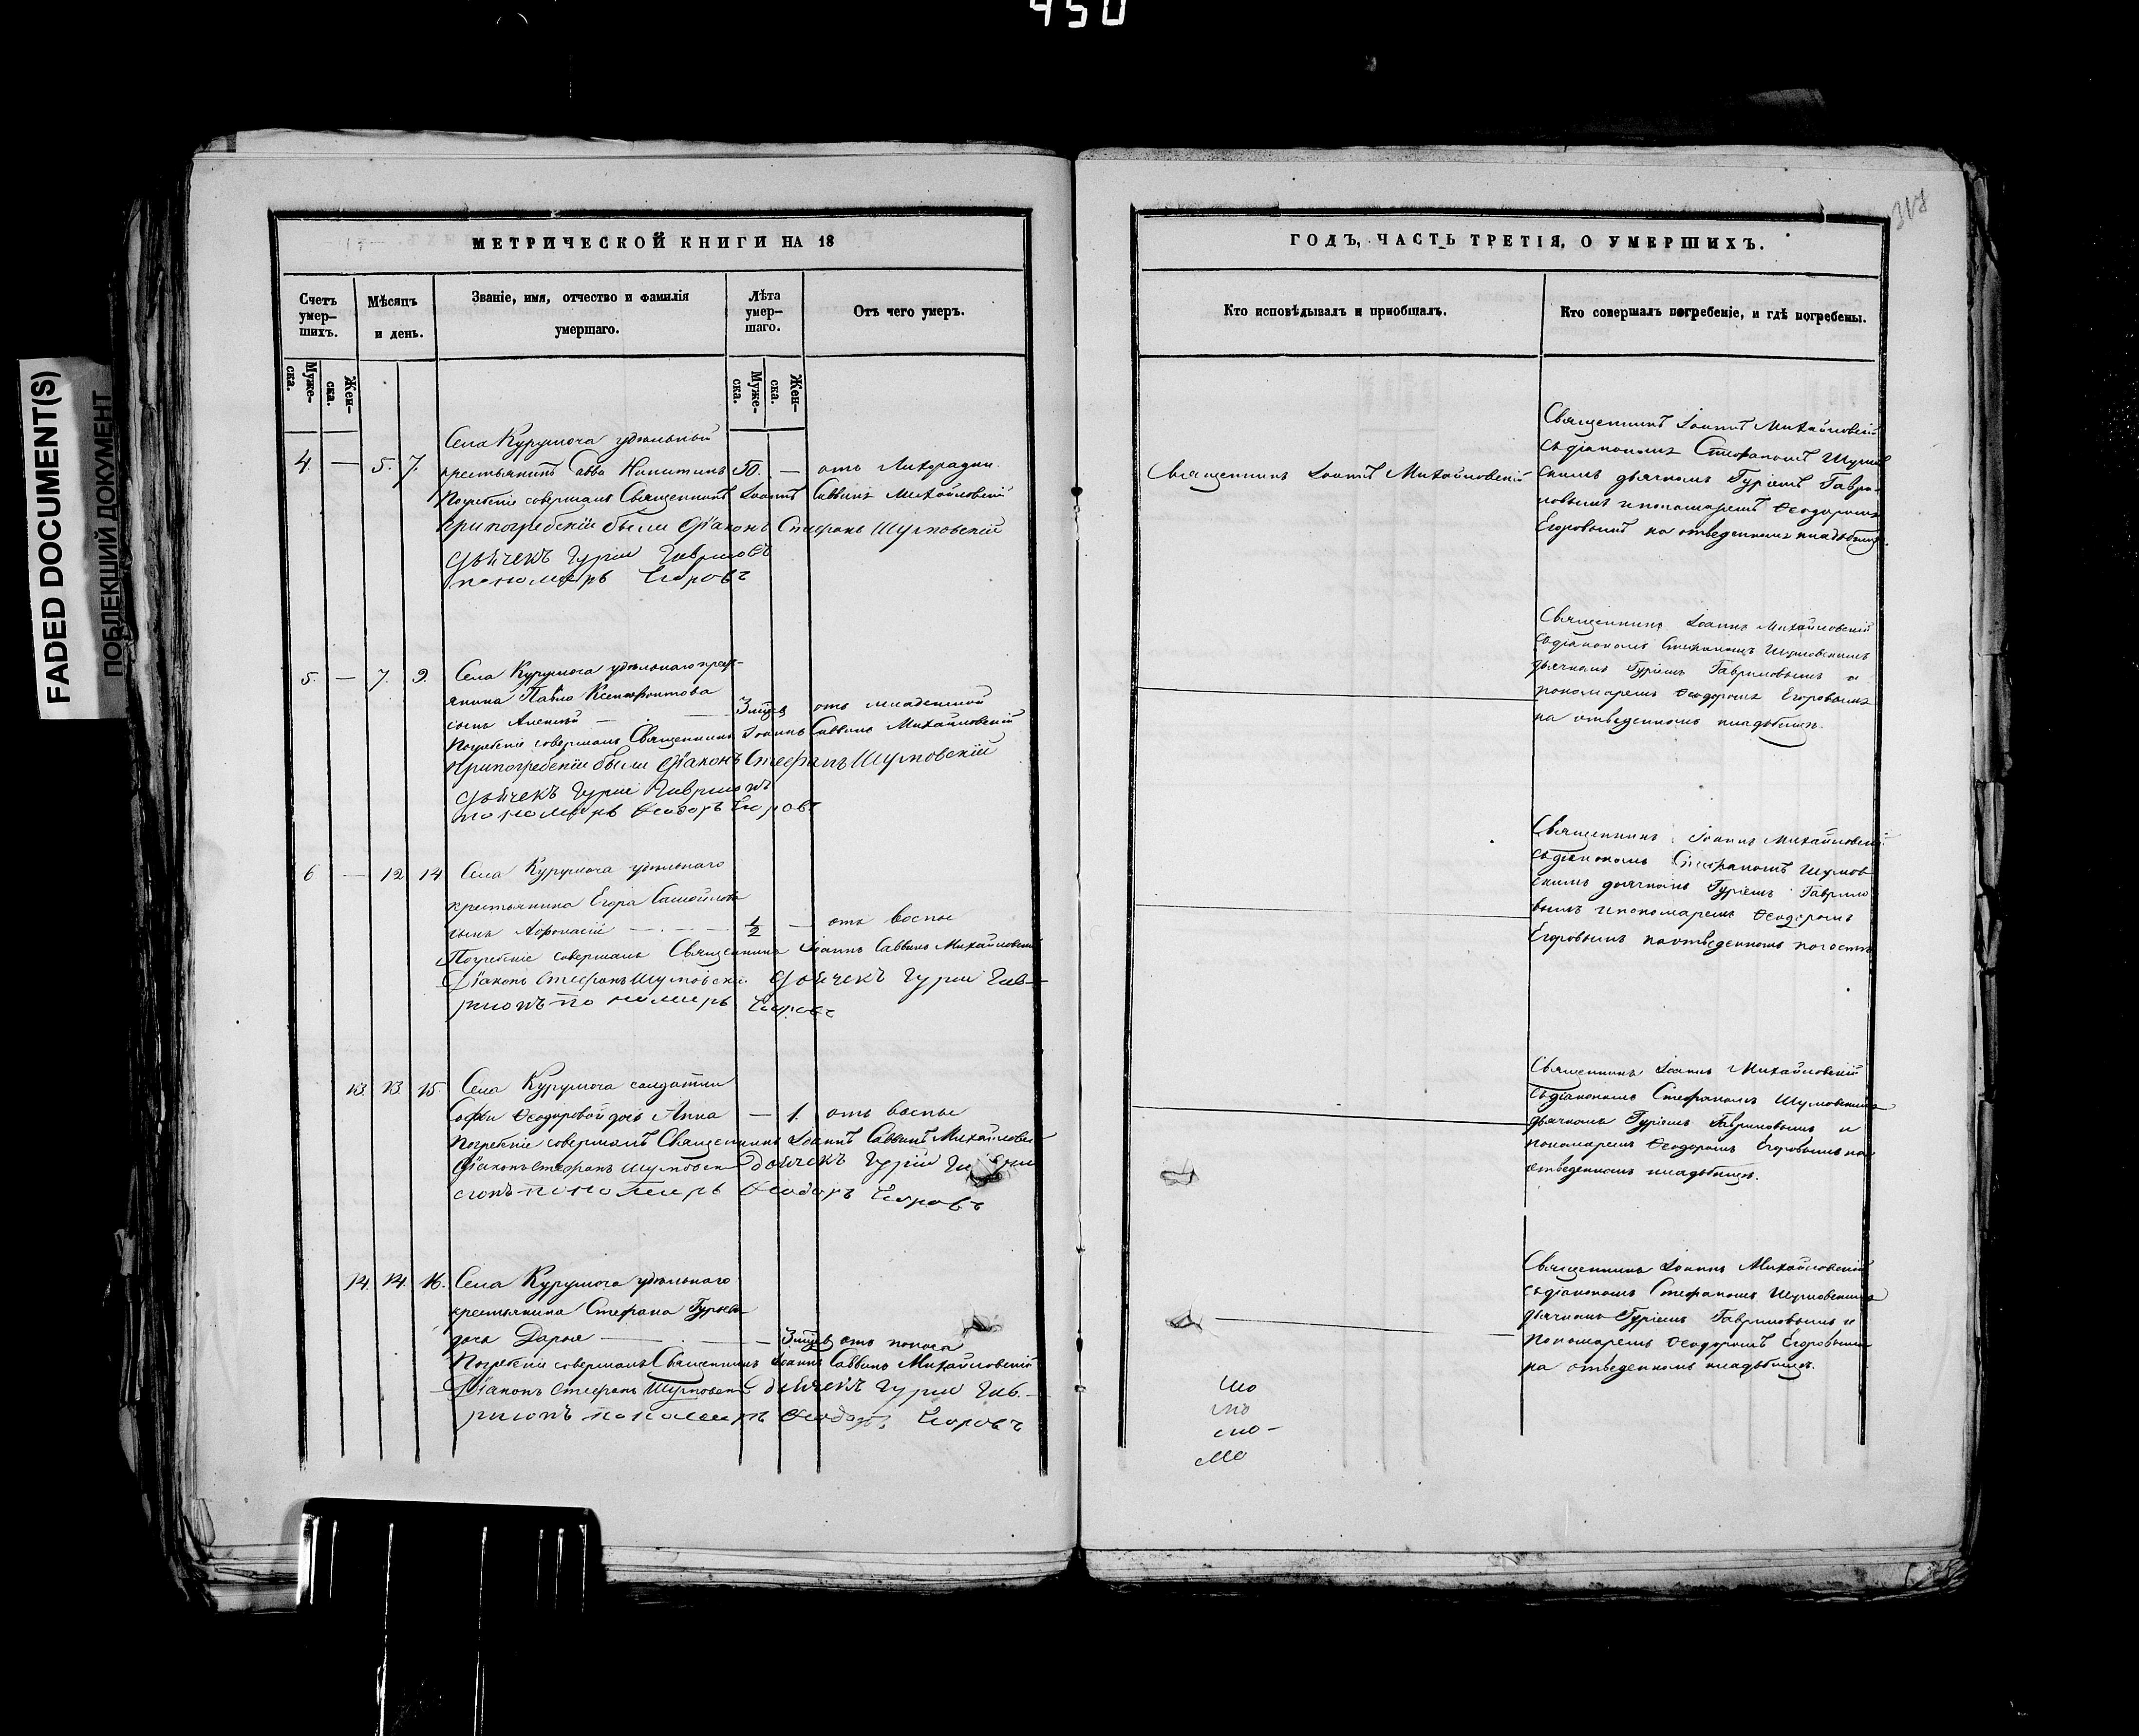 450
FADED DOCUMENT(S)
ПОБЛЕКШИЙ ДОКУМЕНТ
МЕТРИЧЕСКОЙ КНИГИ НА 18
Счетъ умер-шихъ.
Мѣсяцъ и день.
Званіе, имя, отчество и фамилія умершаго.
Лѣта умер-шаго.
Отъ чего умеръ.
Муже-ска.
Жен-ска.
Муже-ска.
Жен-ска.
Села Курумоча удѣльный
4. — 5. 7. крестьянинъ Савва Никитинъ 50. — отъ лихорадки.
Погребеніе совершалъ Священникъ Іоаннъ Саввинъ Михайловскій
При погребеніи были Діаконъ Стефанъ Шумовскій
Дьячекъ Гурій Гавриловъ
пономарь Егоровъ
5. — 7. 9. Села Курумоча удѣльнаго крест-
янина Павла Ксенофонтова
сынъ Алексѣй — 3 мѣсяц отъ младенской
Погребеніе совершалъ Священникъ Іоаннъ Саввинъ Михайловскій
При погребеніи были Діаконъ Стефанъ Шумовскій
Дьячекъ Гурій Гавриловъ
пономарь Ѳеодоръ Егоровъ
6 — 12 14 Села Курумоча удѣльнаго
крестьянина Егора Самойлова
сынъ Афонасій — 1/2 — отъ воспы
Погребеніе совершалъ Священникъ Іоаннъ Саввинъ Михайловскій
Діаконъ Стефанъ Шумовскій Дьячекъ Гурій Гав-
риловъ пономарь Егоровъ
13. 13. 15. Села Курумоча солдатки
Софьи Ѳеодоровой дочь Анна — 1. отъ воспы
Погребеніе совершалъ Священникъ Іоаннъ Саввинъ Михайловскій
Діаконъ Стефанъ Шумовскій Дьячекъ Гурій
пономарь Ѳеодоръ Егоровъ
14. 14. 16. Села Курумоча удѣльнаго
крестьянина Стефана Гурьева
дочь Дарья — 3 мѣсяц отъ поноса
Погребеніе совершалъ Священникъ Іоаннъ Саввинъ Михайловскій
Діаконъ Стефанъ Шумовскій Дьячекъ Гурій Гав-
риловъ пономарь Ѳеодоръ Егоровъ
ГОДЪ, ЧАСТЬ ТРЕТІЯ, О УМЕРШИХЪ.
Кто исповѣдывалъ и пріобщалъ.
Кто совершалъ погребеніе, и гдѣ погребены.
Священникъ Іоаннъ Михайловскій
Священникъ Іоаннъ Михайловскій
съ діакономъ Стефаномъ Шумов
скимъ дьячкомъ Гуріемъ Гаври-
ловымъ и пономаремъ Ѳеодоромъ
Егоровымъ на отведенномъ кладбищѣ.
Священникъ Іоаннъ Михайловскій
съ діакономъ Стефаномъ Шумовскимъ
дьячкомъ Гуріемъ Гавриловымъ и
пономаремъ Ѳеодоромъ Егоровымъ
на отведенномъ кладбищѣ.
Священникъ Іоаннъ Михайловскій
съ діакономъ Стефаномъ Шумов
скимъ дьячкомъ Гуріемъ Гаврило
вымъ и пономаремъ Ѳеодоромъ
Егоровымъ на отведенномъ погостѣ
Священникъ Іоаннъ Михайловскій
съ діакономъ Стефаномъ Шумовскимъ
дьячкомъ Гуріемъ Гавриловымъ и
пономаремъ Ѳеодоромъ Егоровымъ на
отведенномъ кладбищѣ.
Священникъ Іоаннъ Михайловскій
съ діакономъ Стефаномъ Шумовскимъ
дьячкомъ Гуріемъ Гавриловымъ и
пономаремъ Ѳеодоромъ Егоровымъ
на отведенномъ кладбищѣ.